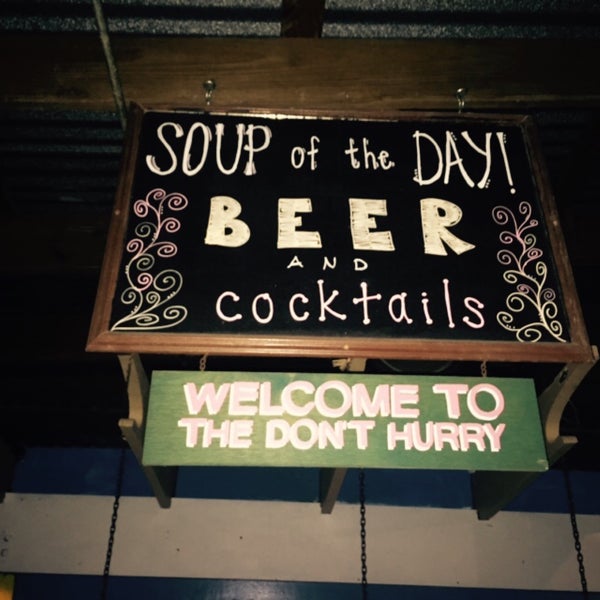 SOUP of the DAY!
BEER
AND
cocktails
WELCOME TO
THE DON'T HURRY